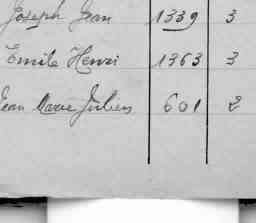 Joseph Jean 1339 3
Emile Henri 1363 3
Jean Marie Julien 601 2